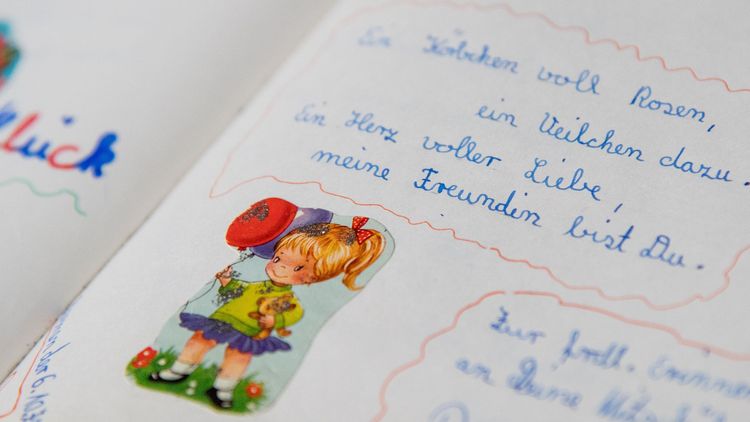 lück
Ein Körbchen voll Rosen,
ein Veilchen dazu.
Ein Herz voller Liebe,
meine Freundin bist Du.
Zur frdl. Erinner
an Deine